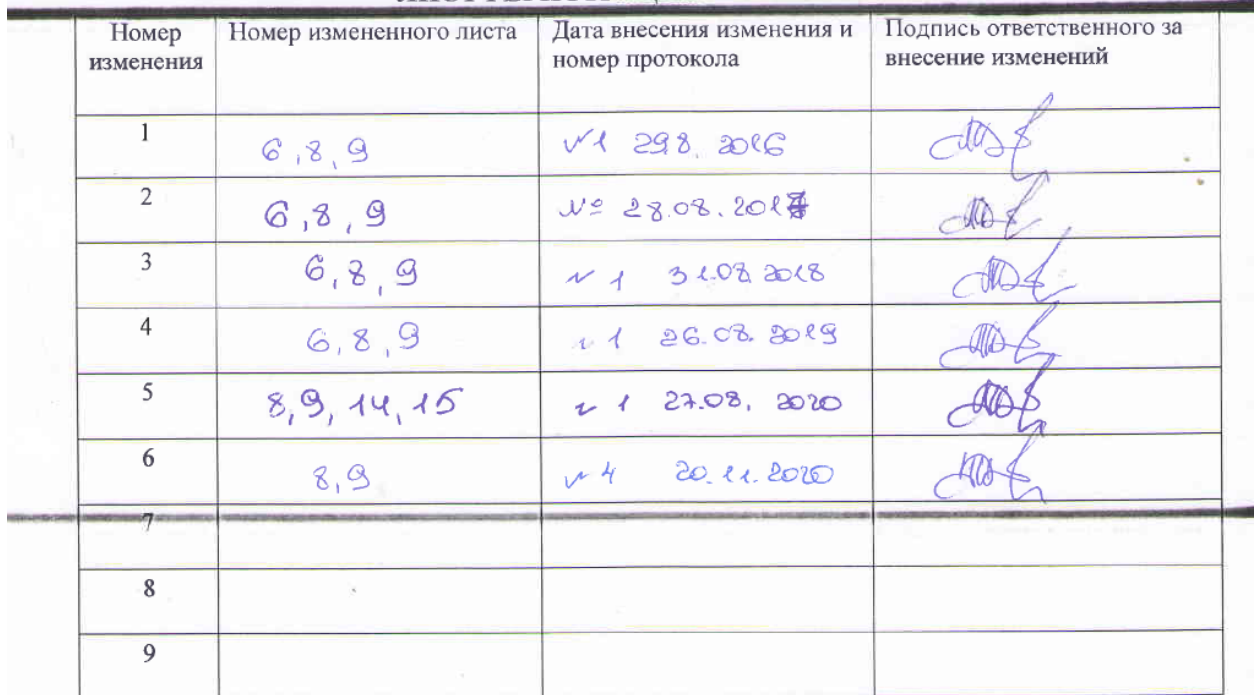 Номер изменения Номер измененного листа Дата внесения изменения и номер протокола Подпись ответственного за внесение изменений
1 6,8,9 №1 29.8. 2016
2 6,8,9 № 28.08.2017
3 6,8,9 №1 31.08.2018
4 6,8,9 №1 26.08.2019
5 8,9,14,15 №1 27.08.2020
6 8,9 №4 20.11.2020
7
8
9